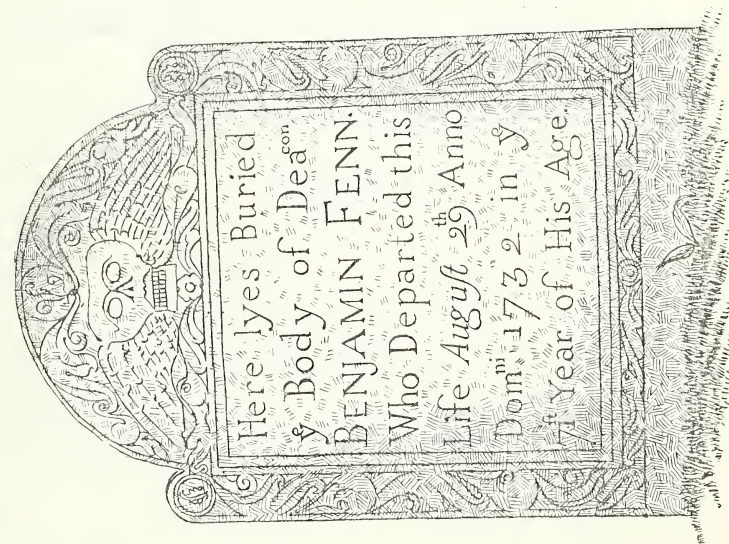 Here lyes Buried
yͤ Body of Deacon.
BENJAMIN FENN.
Who Departed this
Life Auguſt 29th Anno
Domni 1732 in yͤ
71ſt Year of His Age.